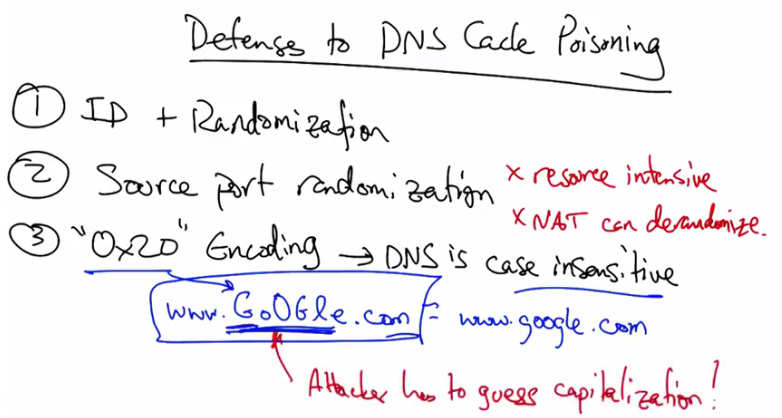 Defenses to DNS Cache Poisoning
① ID + Randomization
② Source port randomization x resource intensive
x NAT can derandomize.
③ "0x20" Encoding → DNS is case insensitive
www.GoOGle.com = www.google.com
Attacker has to guess capitalization!